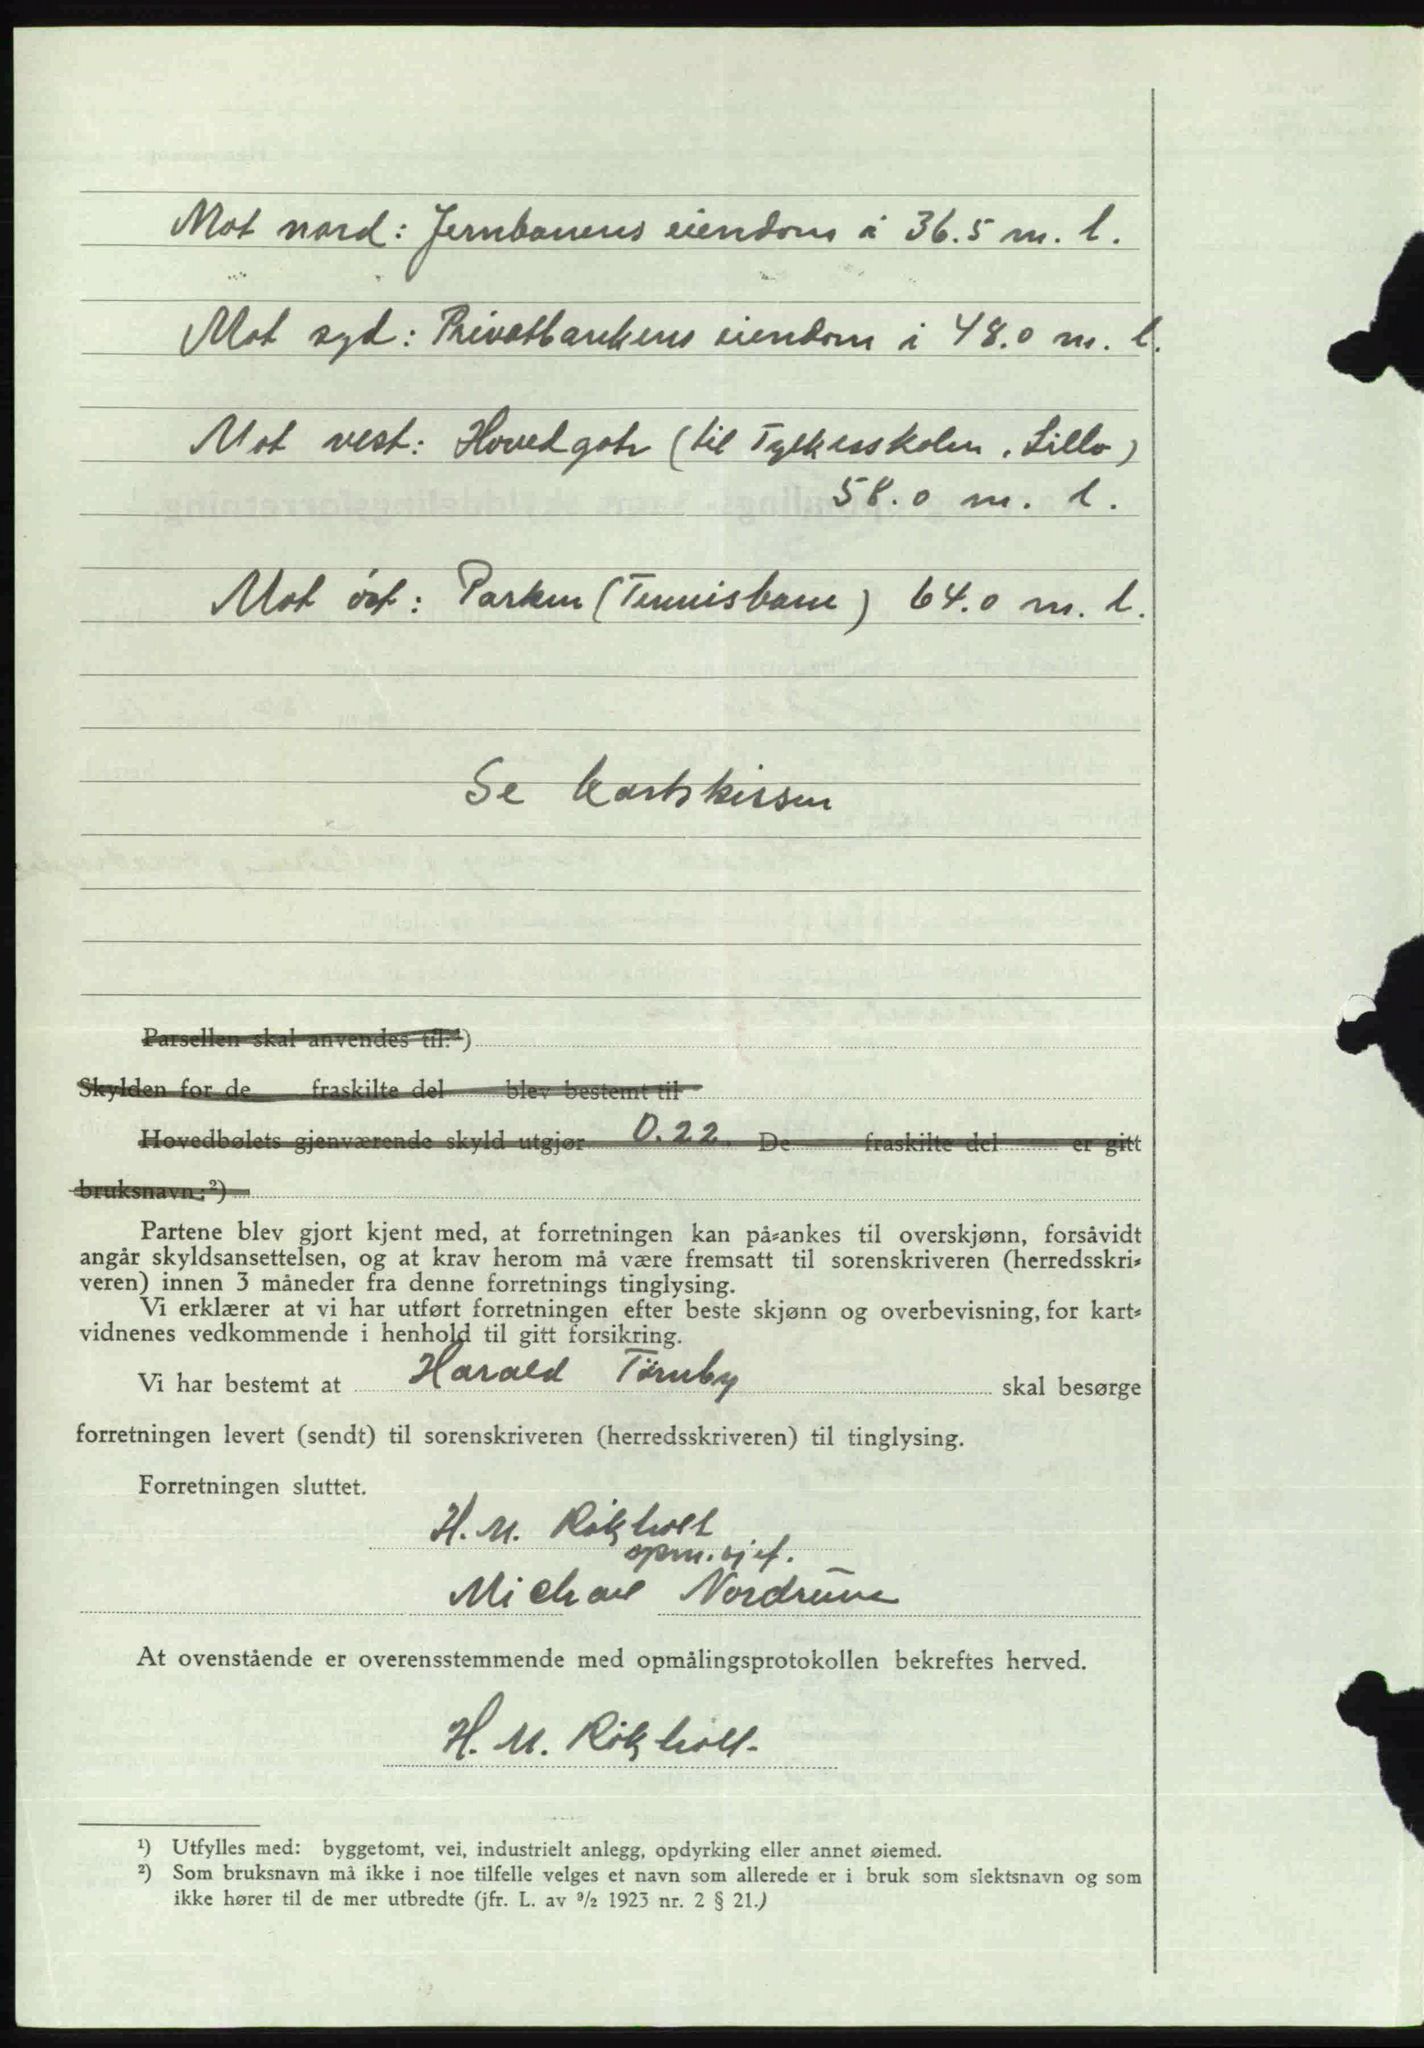 Mot nord: Jernbanens eiendom i 36.5 m. l.
Mot syd: Privatbankens eiendom i 48.0 m. l.
Mot vest: Hovedgate (til Fylkesskolen, Lillo)
58.0 m. l.
Mot öst: Parken (Tennisbane) 64.0 m. l.
Se kartskissen
Parsellen skal anvendes til:¹)
Skylden for de fraskilte del blev bestemt til
Hovedbølets gjenværende skyld utgjør 0.22. De fraskilte del er gitt
bruksnavn:²)
Partene blev gjort kjent med, at forretningen kan på-ankes til overskjønn, forsåvidt
angår skyldsansettelsen, og at krav herom må være fremsatt til sorenskriveren (herredsskri-
veren) innen 3 måneder fra denne forretnings tinglysing.
Vi erklærer at vi har utført forretningen efter beste skjønn og overbevisning, for kart-
vidnenes vedkommende i henhold til gitt forsikring.
Vi har bestemt at Harald Tørnby skal besørge
forretningen levert (sendt) til sorenskriveren (herredsskriveren) til tinglysing.
Forretningen sluttet.
H. M. Røkholt
opm.sjef.
Michael Nordrum
At ovenstående er overensstemmende med opmålingsprotokollen bekreftes herved.
H. M. Røkholt
¹) Utfylles med: byggetomt, vei, industrielt anlegg, opdyrking eller annet øiemed.
²) Som bruksnavn må ikke i noe tilfelle velges et navn som allerede er i bruk som slektsnavn og som
ikke hører til de mer utbredte (jfr. L. av ⁹/₂ 1923 nr. 2 § 21.)